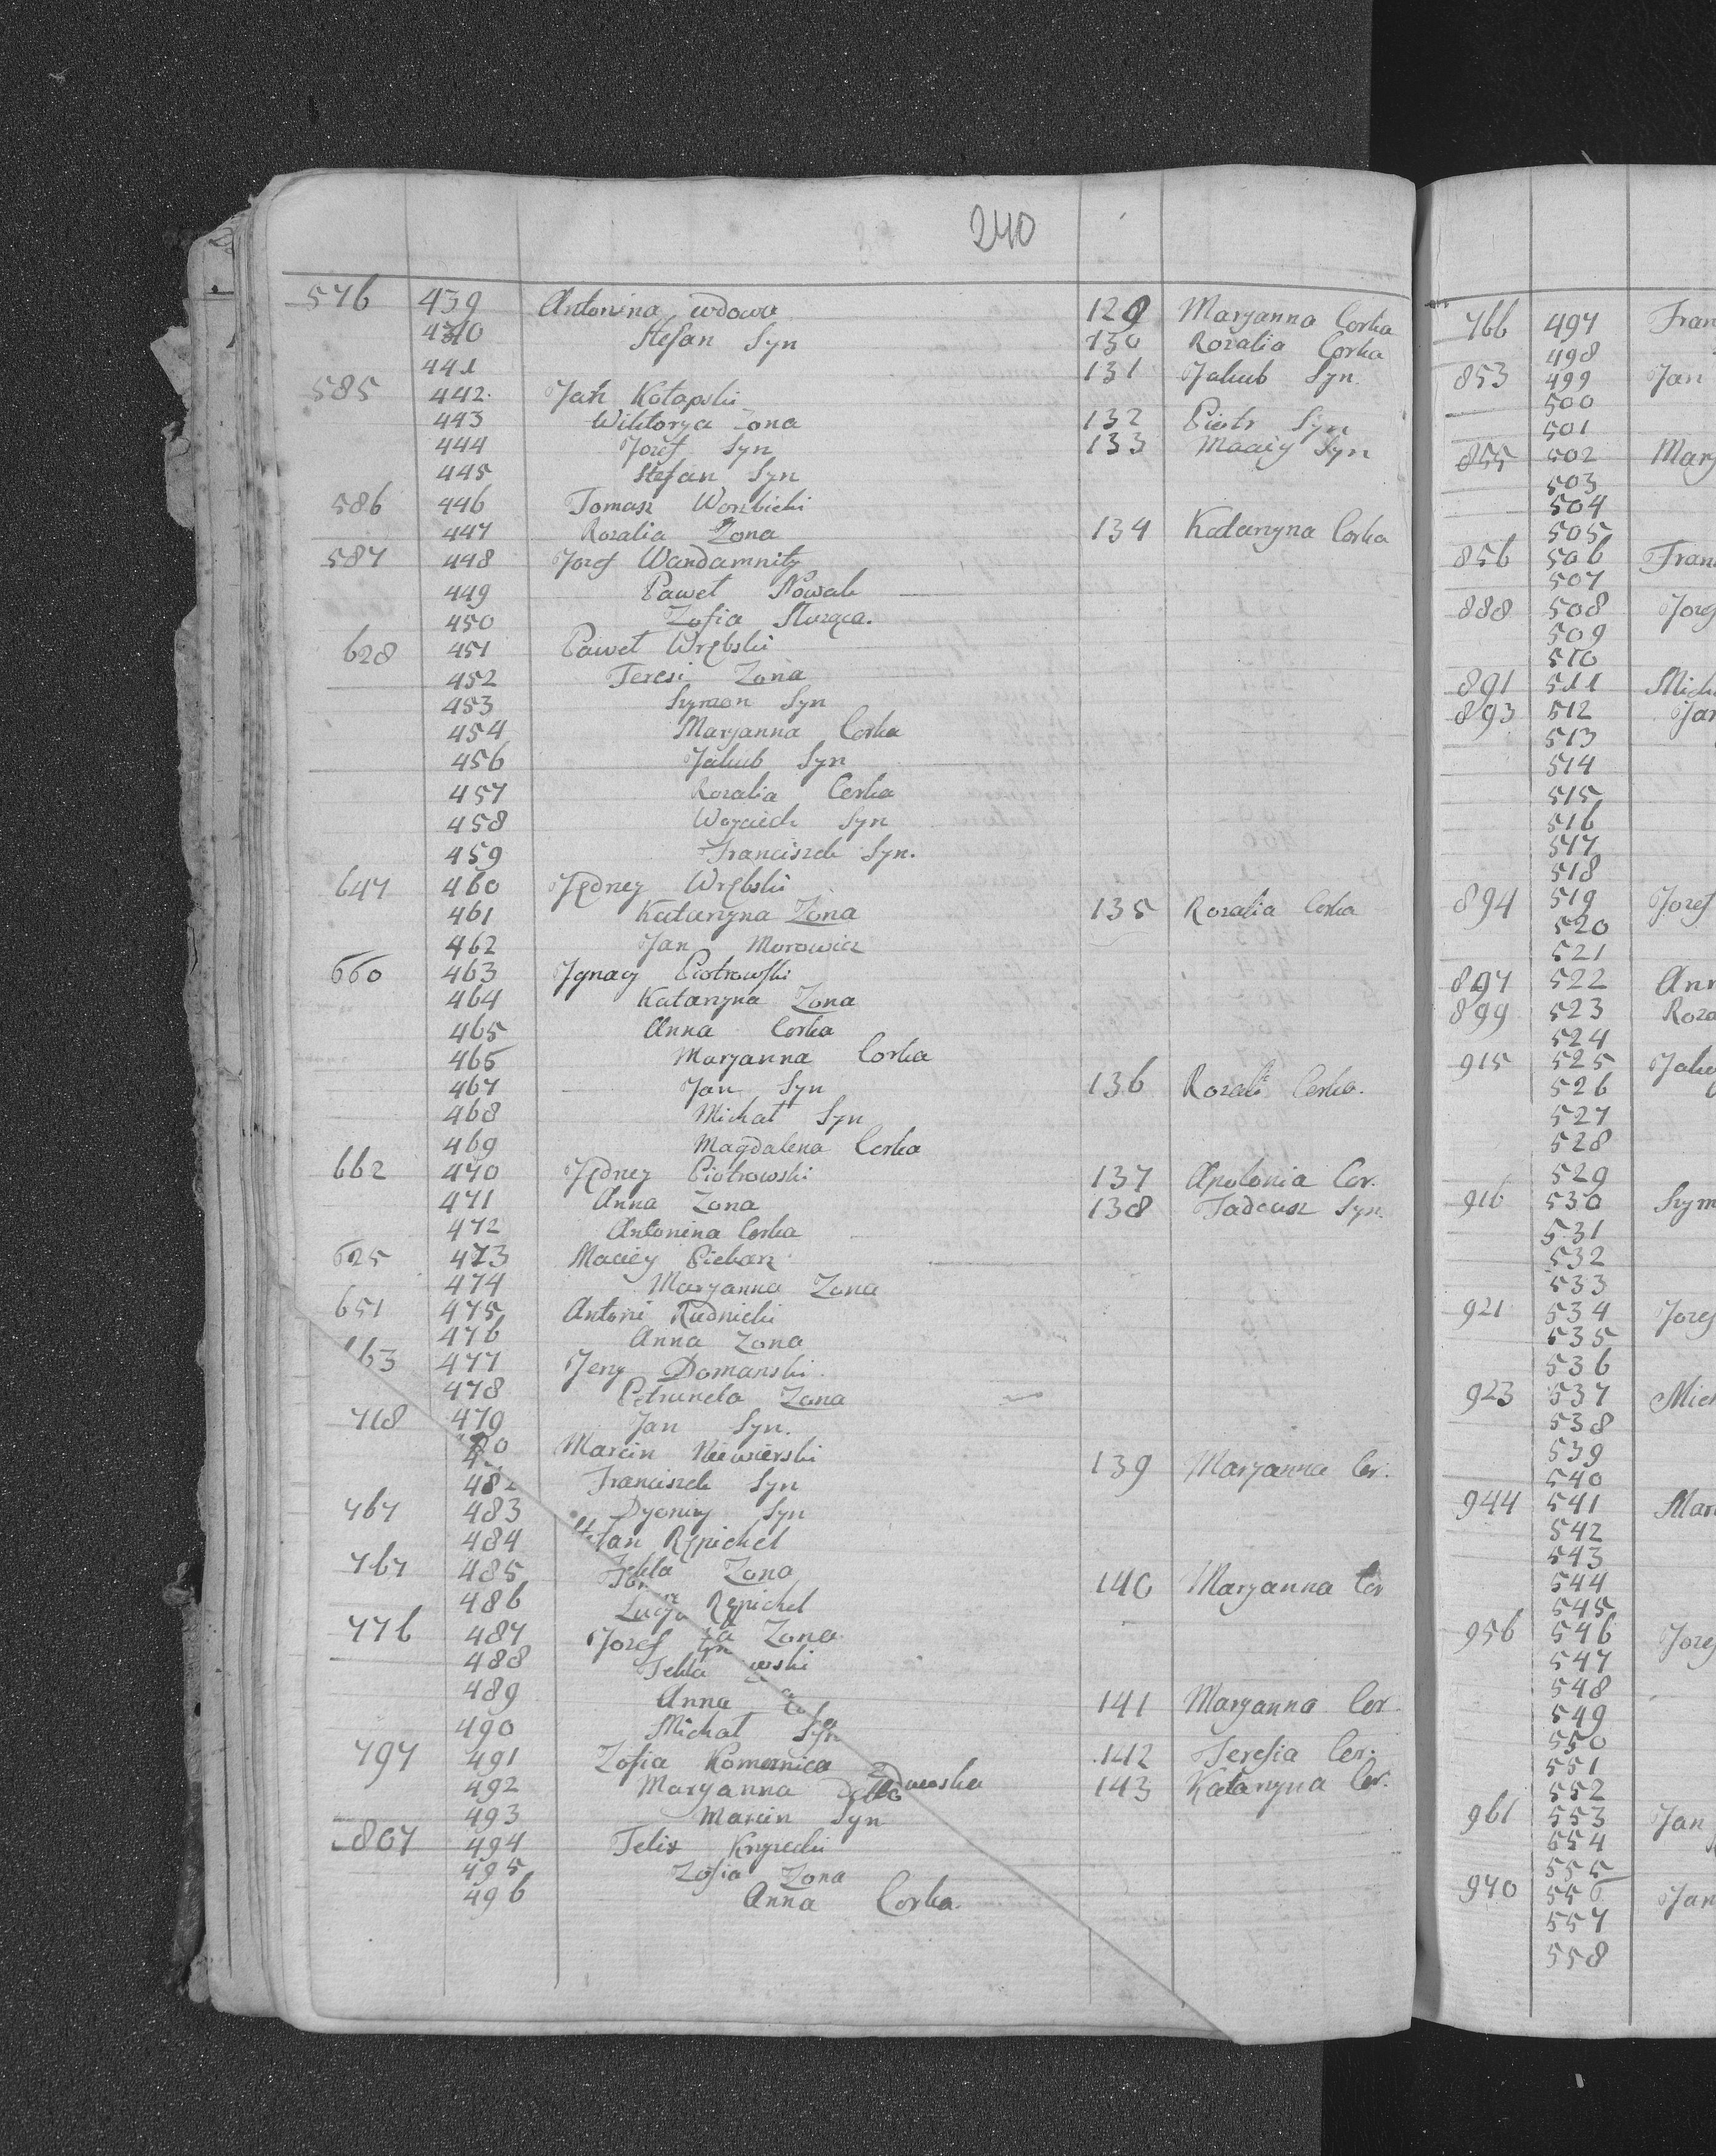 240
576 439 Antonina wdowa 129 Maryanna Corka
440 Stefan Syn 130 Rozalia Corka
441 131 Jakub Syn
585 442 Jan
443 Wiktorya Zona 132 Piotr Syn
444 Jozef Syn 133 Maciey Syn
445 Stefan Syn
586 446 Tomasz
447 Rozalia Zona 134 Katarzyna Corka
587 448 Jozef
449 Paweł Nowak
450 Zofia
628 451 Paweł Wrębski
452 Teresi Zona
453 Symon Syn
454 Maryanna Corka
456 Jakub Syn
457 Rozalia Corka
458 Woyciech Syn
459 Franciszek Syn.
647 460 Jędrzey Wrębski
461 Katarzyna Zona 135 Rozalia Corka
462 Jan
660 463 Jgnacy Piotrowski
464 Katarzyna Zona
465 Anna Corka
466 Maryanna Corka
467 Jan Syn 136 Rozali Corka.
468 Michał Syn
469 Magdalena Corka
662 470 Jędrzey Piotrowski 137 Apolonia Cor.
471 Anna Zona 138 Tadeusz Syn.
472 Antonina Corka
625 473 Maciey Piekarz
474 Maryanna Zona
651 475 Antoni Rudnicki
476 Anna Zona
663 477 Jerzy Domanski
478 Petrunela Zona
718 479 Jan Syn.
Marcin Niewierski 139 Maryanna Cor.
482 Franciszek Syn
767 483 Dyonizy Syn
484
767 485 Tekla Zona 140 Maryanna Cor
486
776 487 Jozef Zona
488 Tekla
489 Anna 141 Maryanna Cor.
490 Michał Syn
797 491 Zofia Komornica 142 Teresia Cor.
492 Maryanna 143 Katarzyna Cor.
493 Marcin Syn
807 494 Felix
495 Zofia Zona
496 Anna Corka
766 497 Fran
498
853 499 Jan
500
501
855 502 Mary
503
504
505
856 506 Fran
507
888 508 Joze
509
510
891 511 Mich
893 512 Jan
513
514
515
516
517
518
894 519 Jozef
520
521
897 522 Ann
899 523 Roza
524
915 525 Jaku
526
527
528
529
916 530 Szym
531
532
533
921 534 Jozef
535
536
923 537 Mich
538
539
540
944 541 Mar
542
543
544
545
956 546 Joze
547
548
549
550
551
552
961 553 Jan
554
555
970 556 Jan
557
558